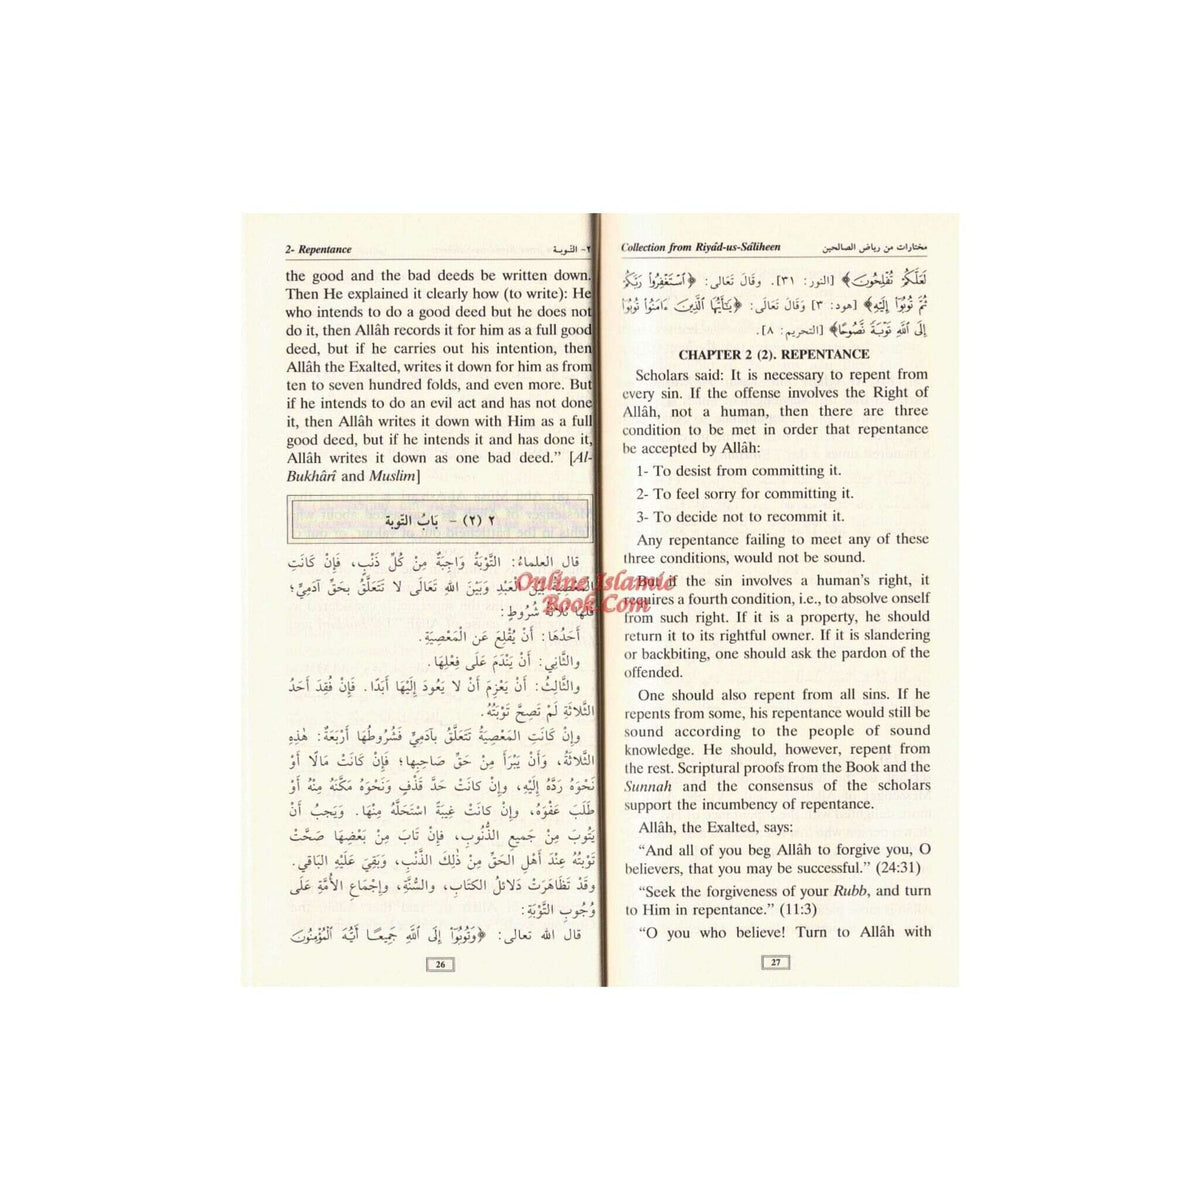 2- Repentance
٢- التوبة
the good and the bad deeds be written down.
Then He explained it clearly how (to write): He
who intends to do a good deed but he does not
do it, then Allâh records it for him as a full good
deed, but if he carries out his intention, then
Allâh the Exalted, writes it down for him as from
ten to seven hundred folds, and even more. But
if he intends to do an evil act and has not done
it, then Allâh writes it down with Him as a full
good deed, but if he intends it and has done it,
Allâh writes it down as one bad deed.” [Al-
Bukhârî and Muslim]
٢ (٢) - بَابُ التَّوبة
قال العلماءُ: التَّوْبَةُ وَاجِبَةٌ مِنْ كُلِّ ذَنْبٍ، فَإِن كَانَتِ
المَعْصِيَةُ بَيْنَ العَبْدِ وَبَيْنَ اللهِ تَعَالَى لا تَتَعَلَّقُ بِحَقِّ آدَمِيٍّ؛
فَلَهَا ثَلَاثَةُ شُرُوطٍ:
أَحَدُهَا: أَنْ يُقْلِعَ عَنِ المَعْصِيَةِ.
والثَّانِي: أَنْ يَنْدَمَ عَلَى فِعْلِهَا.
والثَّالِثُ: أَنْ يَعْزِمَ أَنْ لا يَعُودَ إِلَيْهَا أَبَدًا. فَإِنْ فُقِدَ أَحَدُ
الثَّلاثَةِ لَمْ تَصِحَّ تَوْبَتُهُ.
وإِنْ كَانَتِ المَعْصِيَةُ تَتَعَلَّقُ بآدَمِيٍّ فَشُرُوطُهَا أَرْبَعَةٌ: هٰذِهِ
الثَّلاثَةُ، وَأَنْ يَبْرَأَ مِنْ حَقِّ صَاحِبِها؛ فَإِنْ كَانَتْ مَالًا أَوْ
نَحْوَهُ رَدَّهُ إِلَيْهِ، وإِنْ كانَتْ حَدَّ قَذْفٍ وَنَحْوَهُ مَكَّنَهُ مِنْهُ أَوْ
طَلَبَ عَفْوَهُ، وإِنْ كانَتْ غِيبَةً اسْتَحَلَّهُ مِنْهَا. وَيَجِبُ أَنْ
يَتُوبَ مِنْ جَمِيعِ الذُّنُوبِ، فَإِنْ تَابَ مِنْ بَعْضِهَا صَحَّتْ
تَوْبَتُهُ عِنْدَ أَهْلِ الحَقِّ مِنْ ذٰلِكَ الذَّنْبِ، وَبَقِيَ عَلَيْهِ البَاقِي.
وقَدْ تَظَاهَرَتْ دَلائِلُ الكتَابِ، والسُّنَّةِ، وإِجْمَاعِ الأُمَّةِ عَلَى
وُجُوبِ التَّوْبَةِ:
قال الله تعالى: ﴿وَتُوبُوٓا۟ إِلَى ٱللَّهِ جَمِيعًا أَيُّهَ ٱلْمُؤْمِنُونَ
26
Collection from Riyâd-us-Sâliheen
مختارات من رياض الصالحين
لَعَلَّكُمْ تُفْلِحُونَ﴾ [النور: ٣١]. وقَالَ تَعَالى: ﴿ٱسْتَغْفِرُوا۟ رَبَّكُمْ
ثُمَّ تُوبُوٓا۟ إِلَيْهِ﴾ [هود: ٣] وَقَالَ تَعَالى: ﴿يَٰٓأَيُّهَا ٱلَّذِينَ ءَامَنُوا۟ تُوبُوٓا۟
إِلَى ٱللَّهِ تَوْبَةً نَّصُوحًا﴾ [التحريم: ٨].
CHAPTER 2 (2). REPENTANCE
Scholars said: It is necessary to repent from
every sin. If the offense involves the Right of
Allâh, not a human, then there are three
condition to be met in order that repentance
be accepted by Allâh:
1- To desist from committing it.
2- To feel sorry for committing it.
3- To decide not to recommit it.
Any repentance failing to meet any of these
three conditions, would not be sound.
But if the sin involves a human’s right, it
requires a fourth condition, i.e., to absolve onself
from such right. If it is a property, he should
return it to its rightful owner. If it is slandering
or backbiting, one should ask the pardon of the
offended.
One should also repent from all sins. If he
repents from some, his repentance would still be
sound according to the people of sound
knowledge. He should, however, repent from
the rest. Scriptural proofs from the Book and the
Sunnah and the consensus of the scholars
support the incumbency of repentance.
Allâh, the Exalted, says:
“And all of you beg Allâh to forgive you, O
believers, that you may be successful.” (24:31)
“Seek the forgiveness of your Rubb, and turn
to Him in repentance.” (11:3)
“O you who believe! Turn to Allâh with
27
Online Islamic
Book.Com